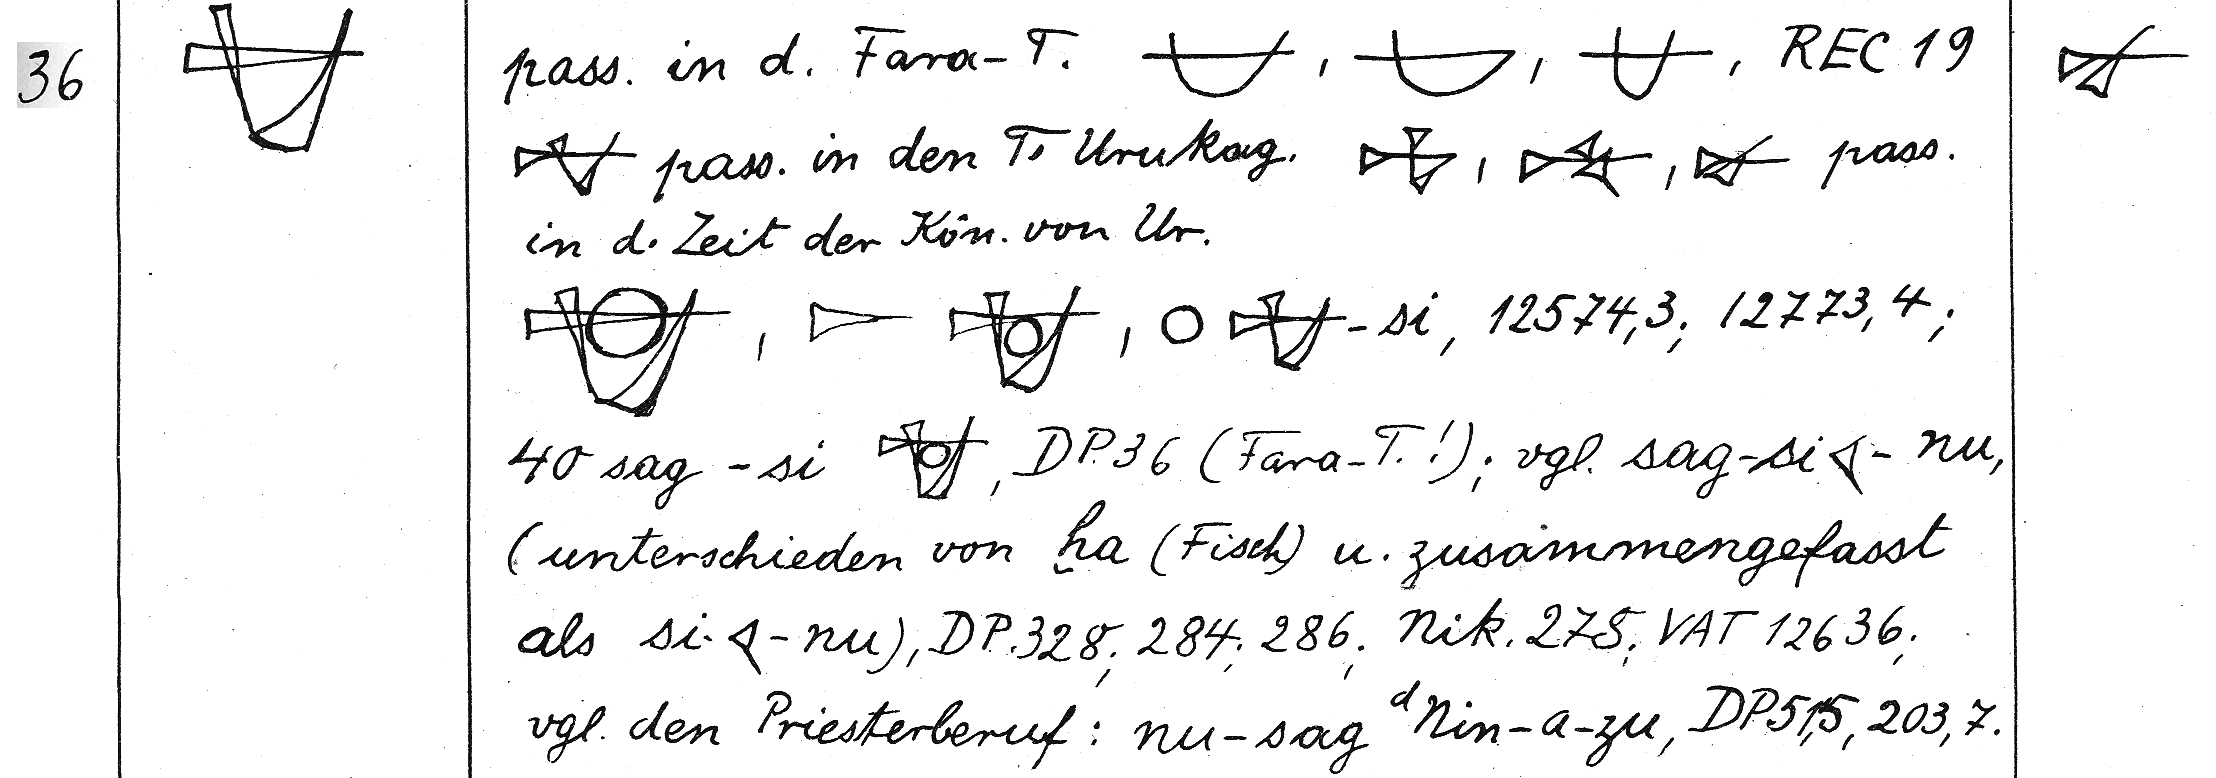 36 pass. in d. Fara-T. , , , REC 19
pass. in den T. Urukag. , , pass.
in d. Zeit der Kön. von Ur.
, , -si, 12574,3; 12773,4;
40 sag-si , DP.36 (Fara-T.!); vgl. sag-si -nu,
(unterschieden von ḫa (Fisch) u. zusammengefasst
als si- -nu), DP.328; 284; 286; Nik. 275; VAT 12636;
vgl. den Priesterberuf: nu-sag ᵈNin-a-zu, DP 51,5, 203,7.